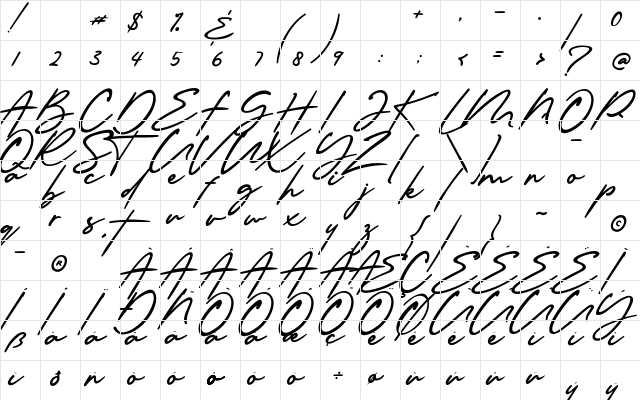 ! # $ % & ( ) + , - . / 0
1 2 3 4 5 6 7 8 9 : ; < = > ? @
A B C D E F G H I J K L M N O P
Q R S T U V W X Y Z [ \ ] _
a b c d e f g h i j k l m n o p
q r s t u v w x y z { | } ~ ©
- ® À Á Â Ã Ä Å Æ Ç È É Ê Ë Ì
Í Î Ï Ð Ñ Ò Ó Ô Õ Ö Ø Ù Ú Û Ü Ý
ß à á â ã ä å æ ç è é ê ë ì í
î ð ñ ò ó ô õ ö ÷ ø ù ú û ü ý ÿ